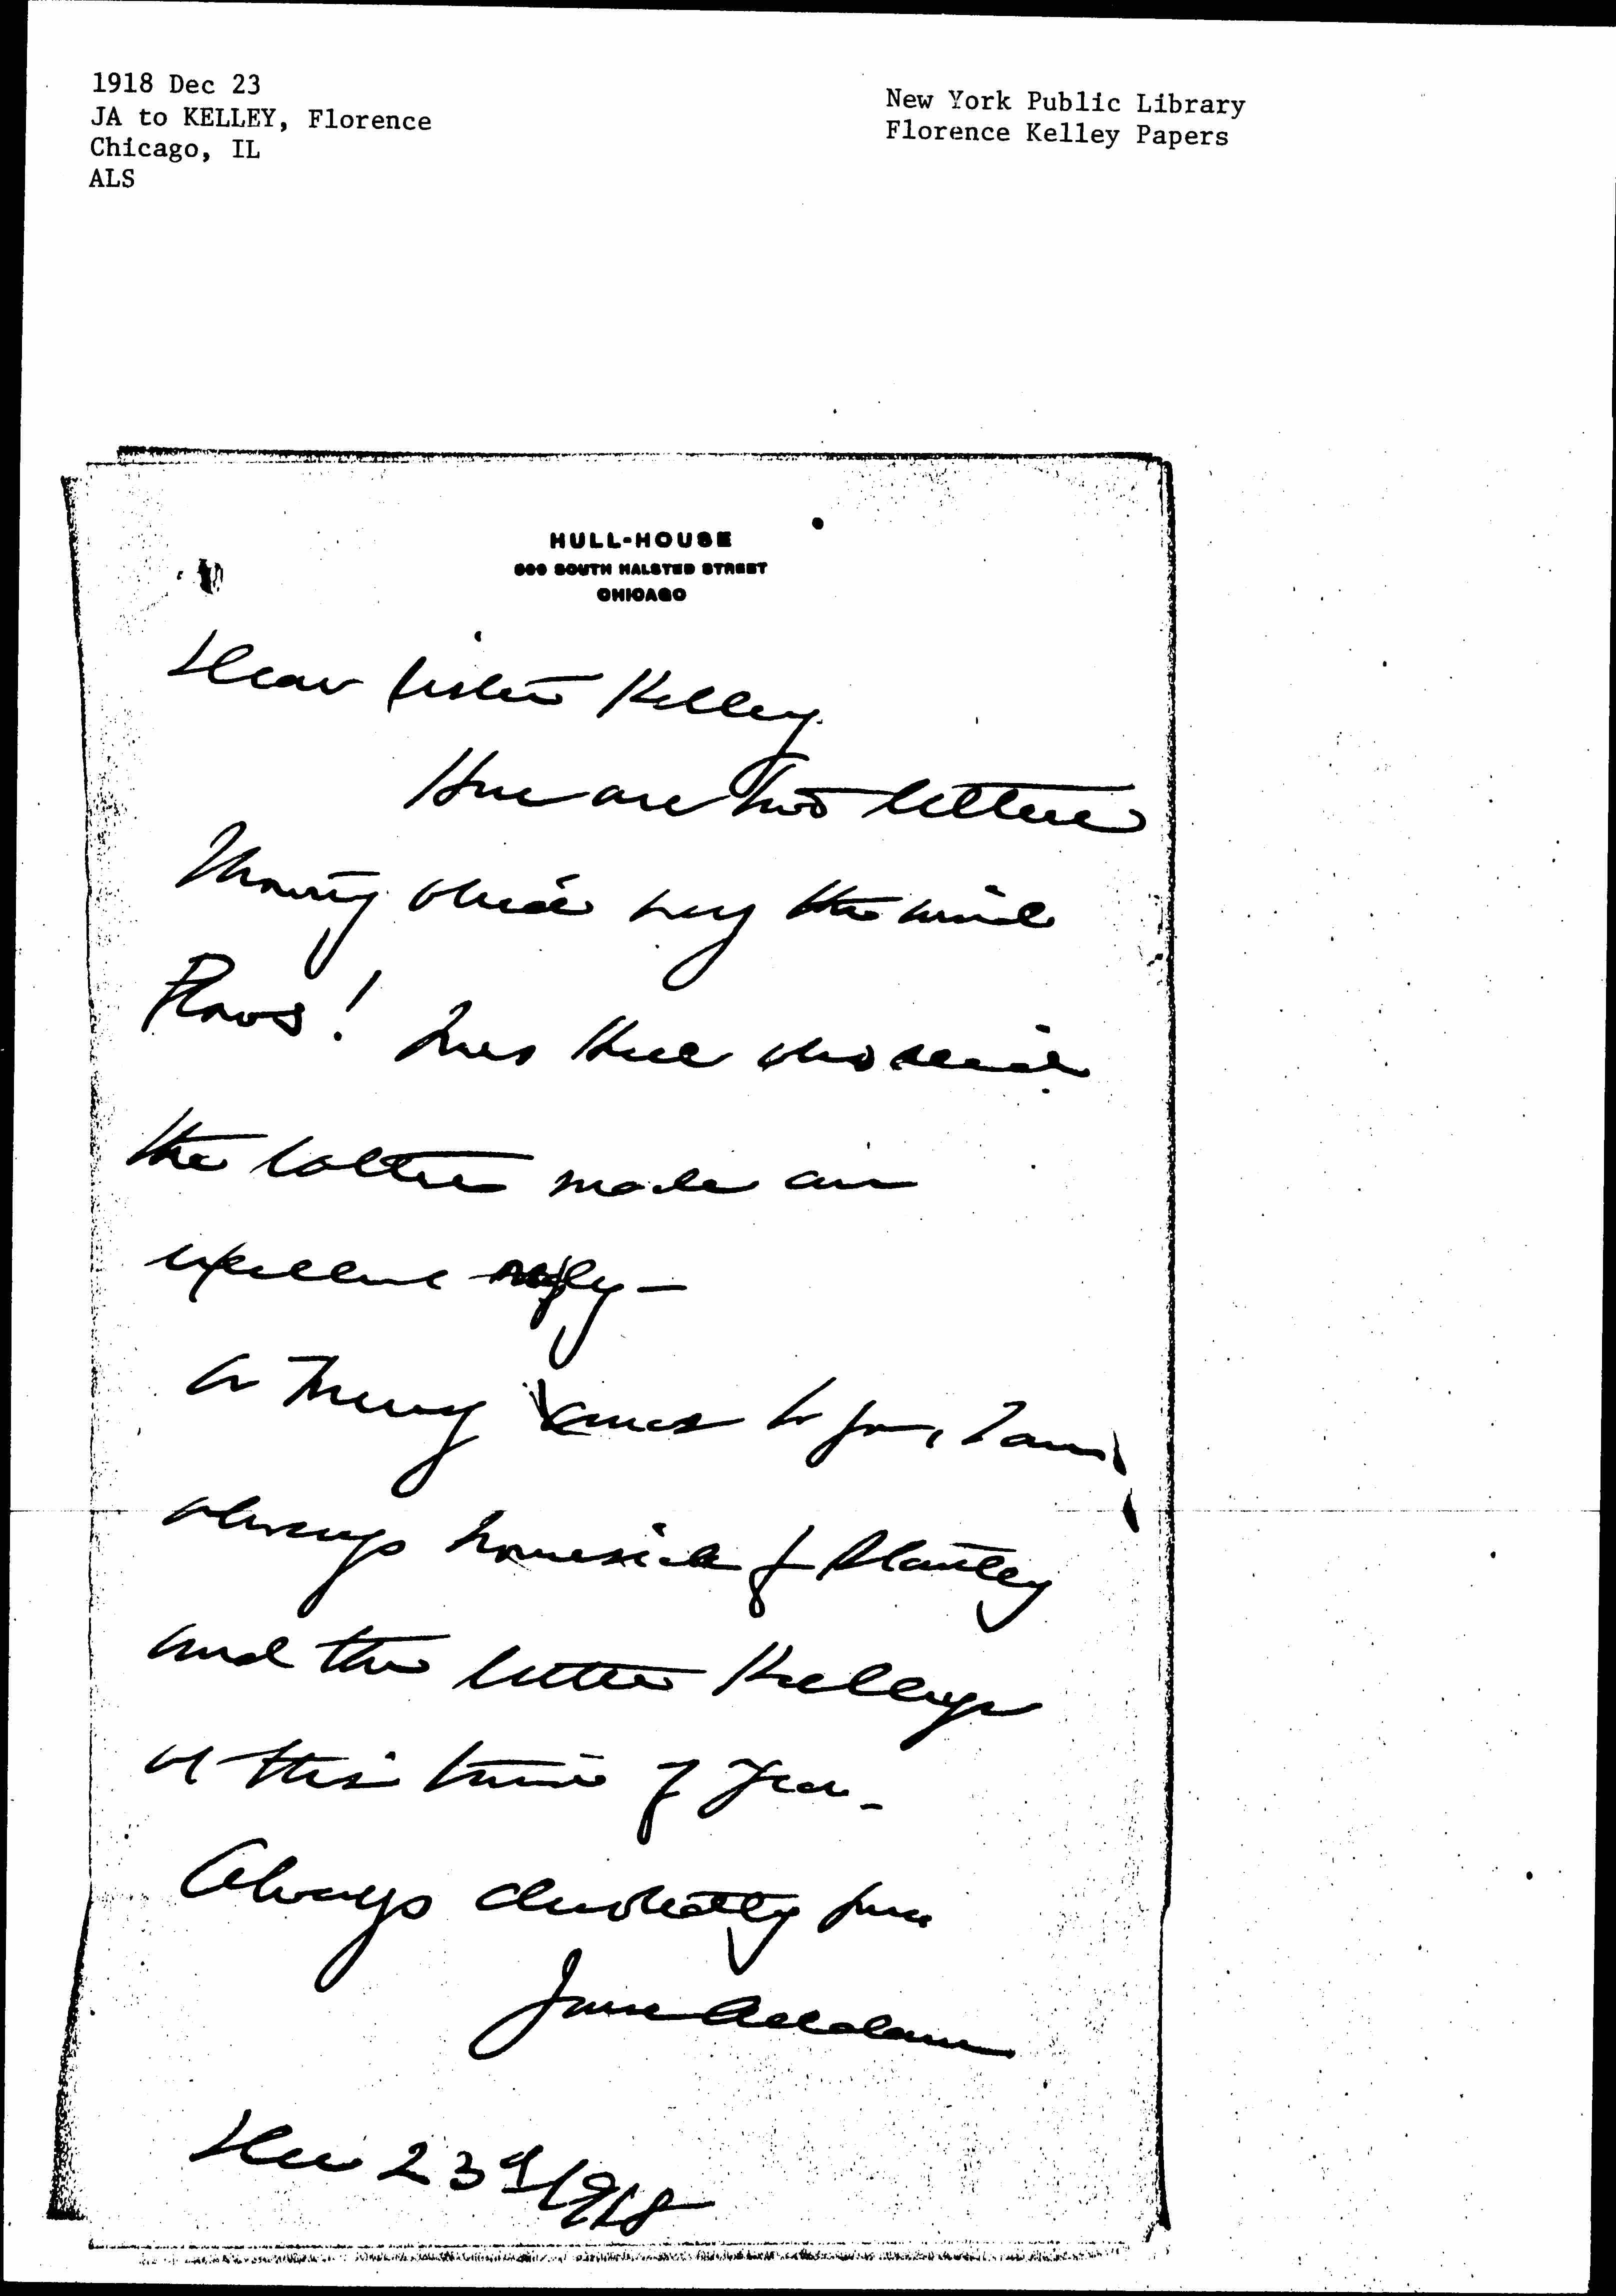 1918 Dec 23
JA to KELLEY, Florence
Chicago, IL
ALS
New York Public Library
Florence Kelley Papers
HULL-HOUSE
800 SOUTH HALSTED STREET
CHICAGO
Dear Sister Kelley.
Here are two letters
showing which way the wind
blows! Miss Hull who
the latter made an
excellent reply —
A Merry Xmas to you, I am
always homesick for Stanley
and the little Kelleys
at this time of year —
Always devotedly yours
Jane Addams
Dec 23d 1918